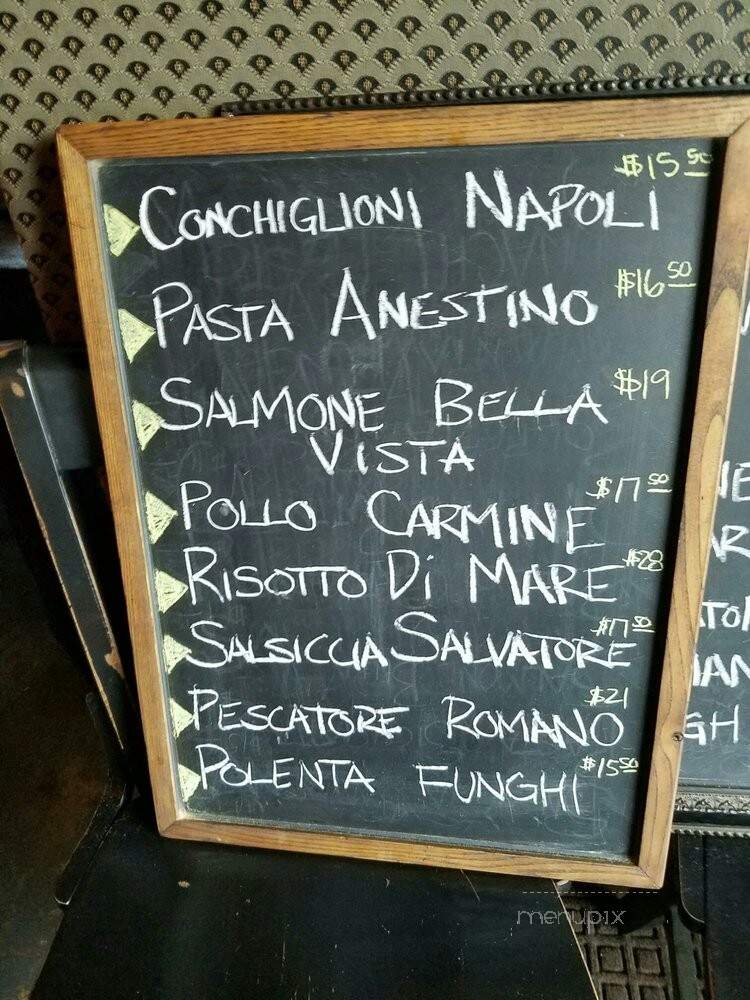 $15.50
CONCHIGLIONI NAPOLI
$16.50
PASTA ANESTINO
$19
SALMONE BELLA
VISTA
$17.50
POLLO CARMINE
$28
RISOTTO Di MARE
$17.50
SALSICCIA SALVATORE
$21
PESCATORE ROMANO
$15.50
POLENTA FUNGHI
menupix